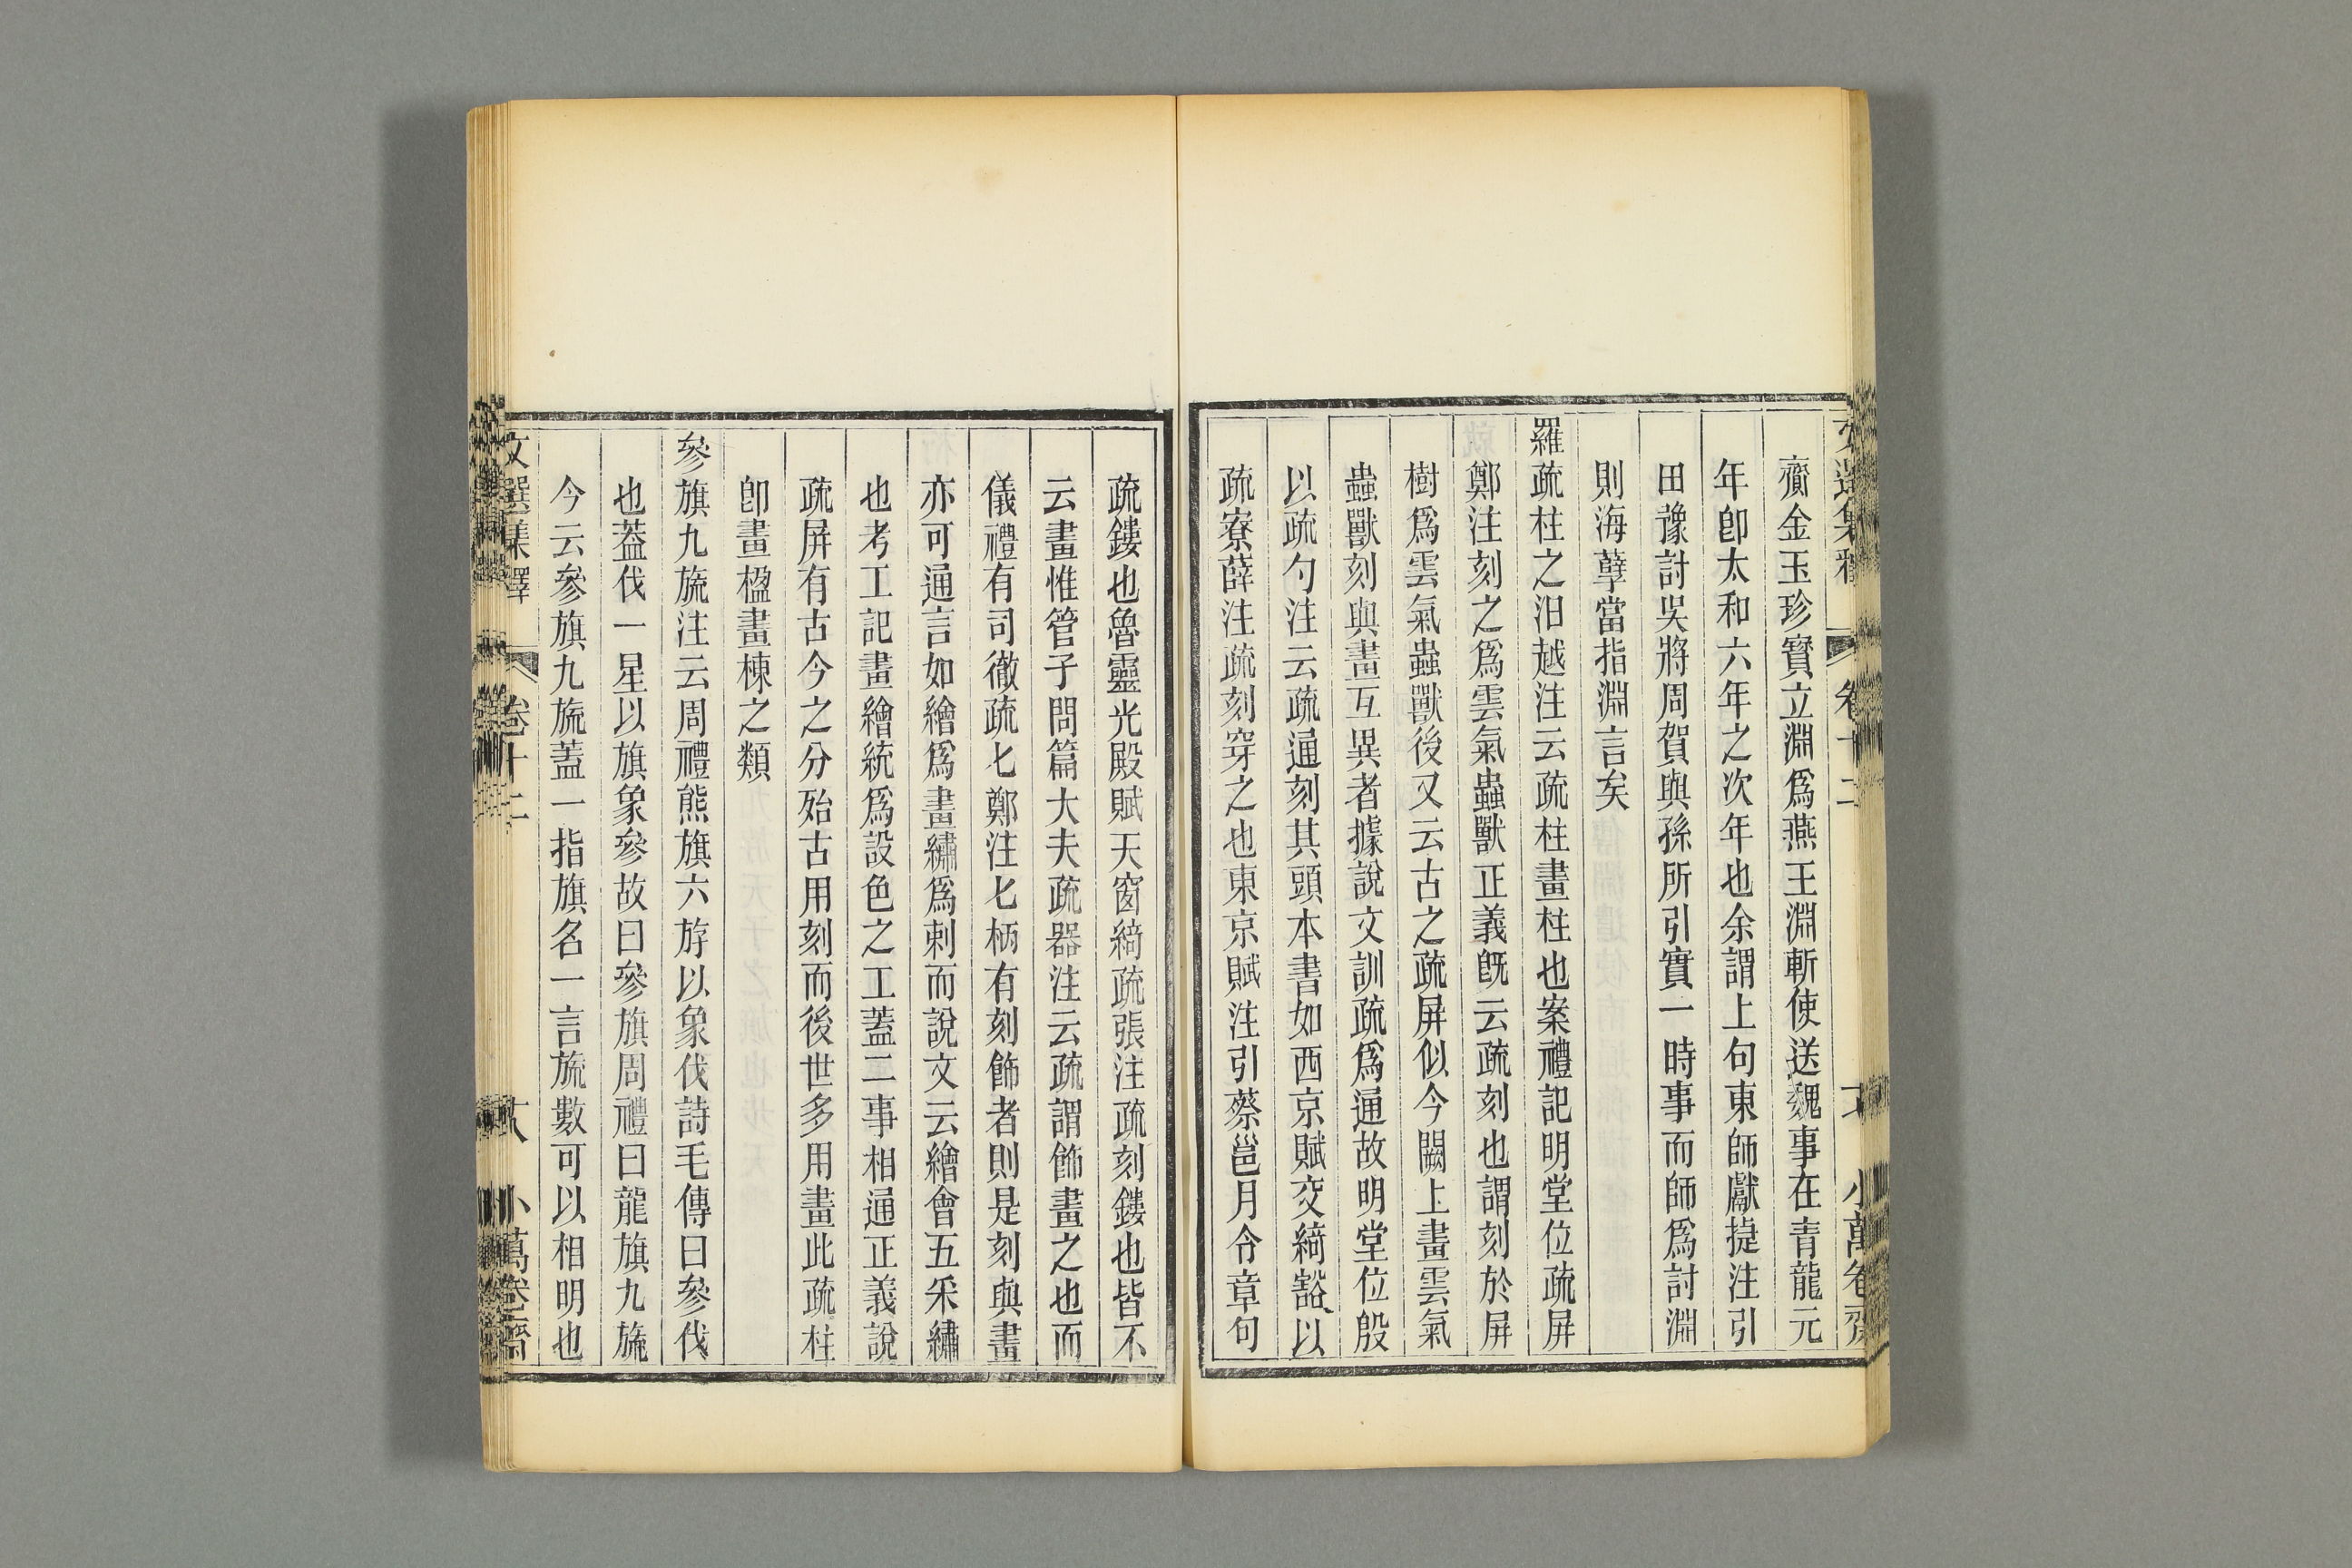 文選集釋 卷十二 小萬卷齋
齎金玉珍寶立淵爲燕王淵斬使送魏事在青龍元
年卽太和六年之次年也余謂上句東師獻捷注引
田豫討吳將周賀與孫所引實一時事而師爲討淵
則海孽當指淵言矣
羅疏柱之汨越注云疏柱畫柱也案禮記明堂位疏屏
鄭注刻之爲雲氣蟲獸正義旣云疏刻也謂刻於屏
樹爲雲氣蟲獸後又云古之疏屏似今闕上畫雲氣
蟲獸刻與畫互異者據說文訓疏爲通故明堂位殷
以疏勺注云疏通刻其頭本書如西京賦交綺豁以
疏寮薛注疏刻穿之也東京賦注引蔡邕月令章句
疏鏤也魯靈光殿賦天窗綺疏張注疏刻鏤也皆不
云畫惟管子問篇大夫疏器注云疏謂飾畫之也而
儀禮有司徹疏匕鄭注匕柄有刻飾者則是刻與畫
亦可通言如繪爲畫繡爲刺而說文云繪會五采繡
也考工記畫繪統爲設色之工蓋二事相通正義說
疏屏有古今之分殆古用刻而後世多用畫此疏柱
卽畫楹畫棟之類
參旗九旒注云周禮熊旗六斿以象伐詩毛傳曰參伐
也蓋伐一星以旗象參故曰參旗周禮曰龍旗九旒
今云參旗九旒蓋一指旗名一言旒數可以相明也
文選集釋 卷十二 六 小萬卷齋